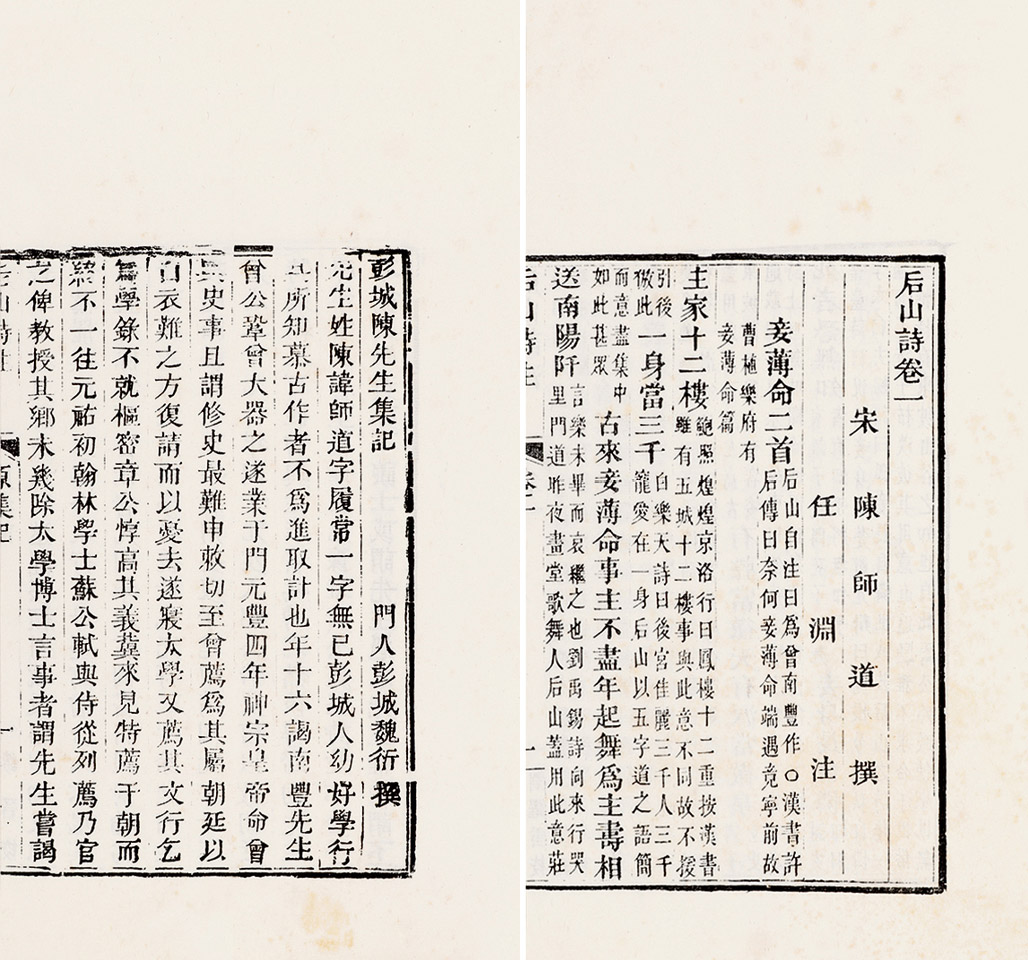 后山詩卷一
宋陳師道撰
任淵注
妾薄命二首后山自注曰爲曾南豐作○漢書許
后傳曰奈何妾薄命端遇竟寧前故
曹植樂府有
妾薄命篇
主家十二樓鮑照煌煌京洛行曰鳳樓十二重按漢書
雖有五城十二樓事與此意不同故不援
引後
倣此
一身當三千白樂天詩曰後宮佳麗三千人三千
寵愛在一身后山以五字道之語簡
而意盡集中
如此甚眾
古來妾薄命事主不盡年起舞爲主壽相
送南陽阡言樂未畢而哀繼之也劉禹錫詩向來行哭
里門道昨夜畫堂歌舞人后山蓋用此意莊
后山詩注 卷一 一
彭城陳先生集記
門人彭城魏衍撰
先生姓陳諱師道字履常一字無已彭城人幼好學行
其所知慕古作者不爲進取計也年十六謁南豐先生
曾公鞏曾大器之遂業于門元豐四年神宗皇帝命曾
典史事且謂修史最難申敕切至曾薦爲其屬朝廷以
白衣難之方復請而以憂去遂寢太學又薦其文行乞
爲學錄不就樞密章公惇高其義冀來見特薦于朝而
終不一往元祐初翰林學士蘇公軾與侍從列薦乃官
之俾教授其鄉未幾除太學博士言事者謂先生嘗謁
后山詩注 原集記 一